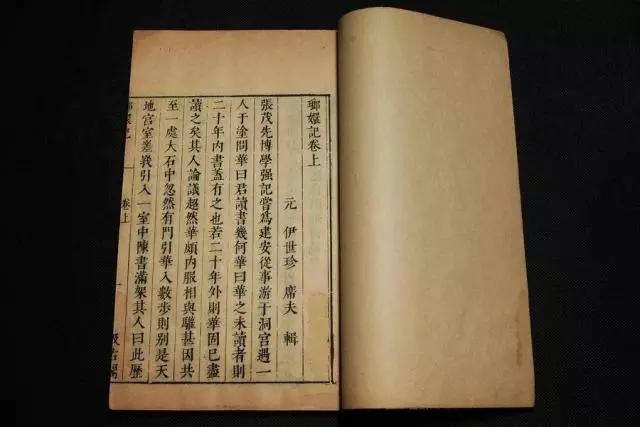 瑯嬛記卷上
元 伊世珍 席夫 輯
張茂先博學强記嘗爲建安從事游于洞宮遇一
人于塗問華曰君讀書幾何華曰華之未讀者則
二十年內書蓋有之也若二十年外則華固已盡
讀之矣其人論議超然華頗内服相與驩甚因共
至一處大石中忽然有門引華入數步則别是天
地宮室嵳峩引入一室中陳書滿架其人曰此歷
嬛記
卷上
一
汲古閣